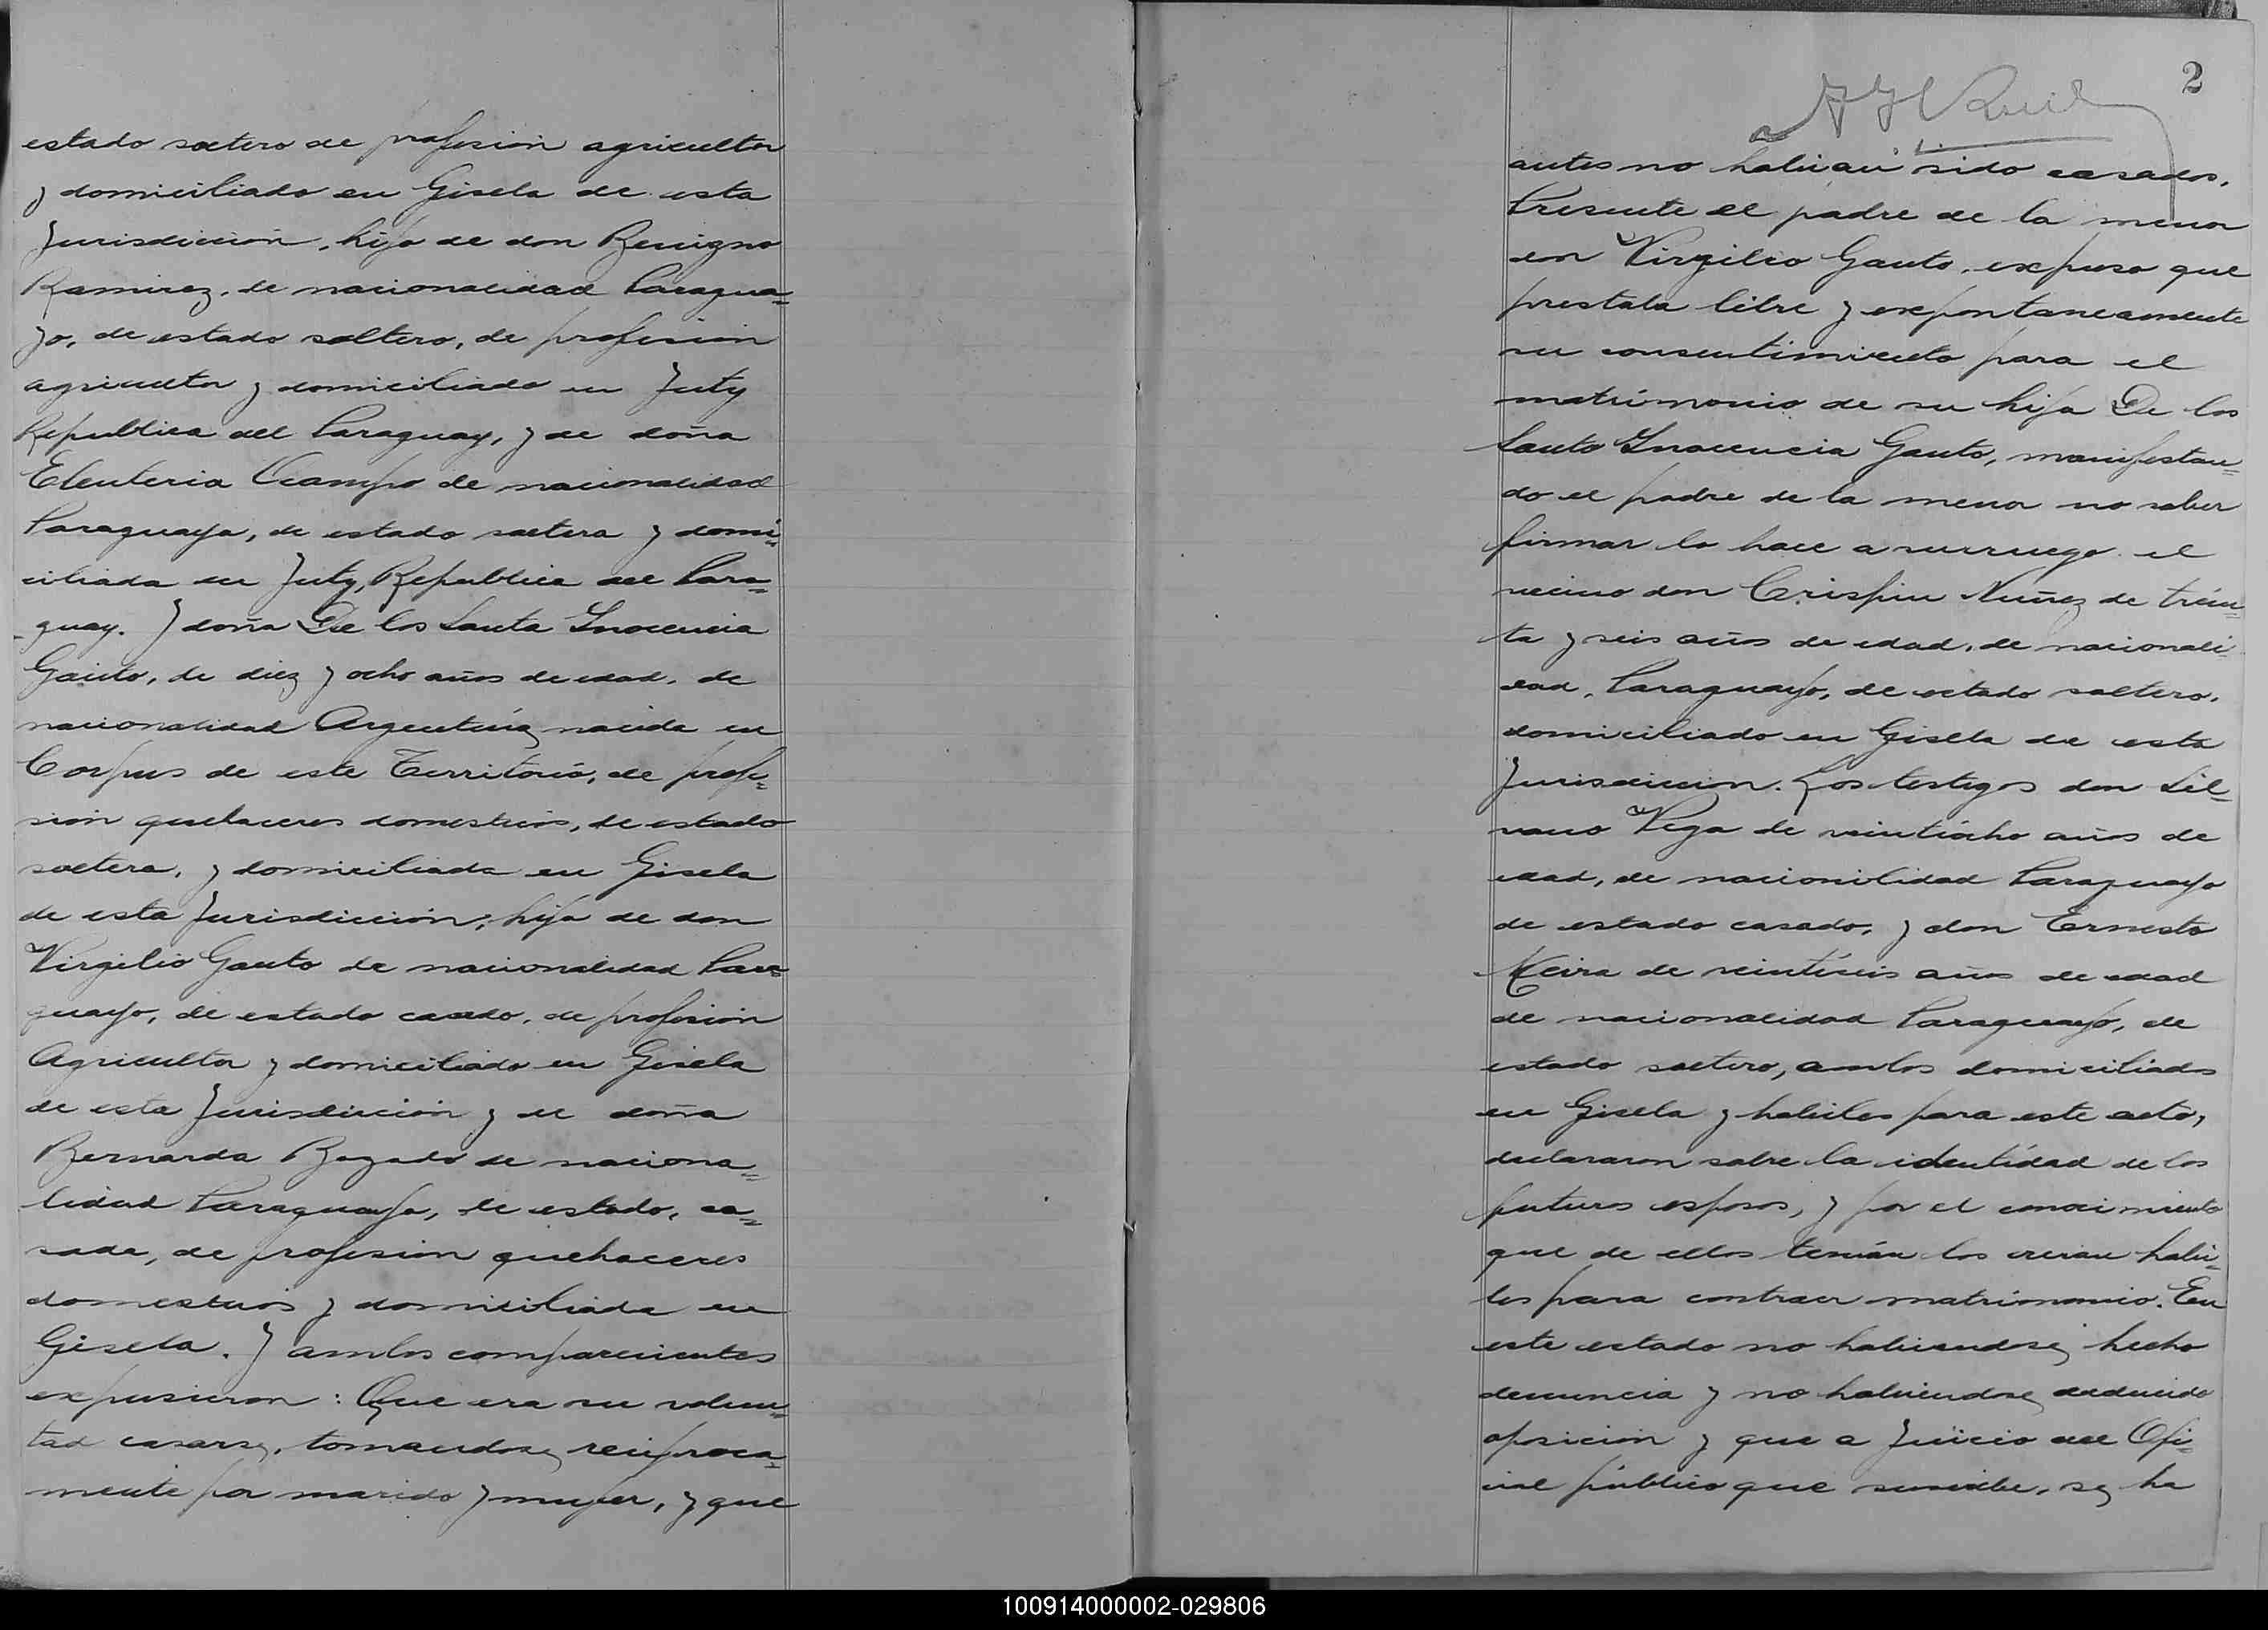 estado soltero de profesion agricultor
y domiciliado en Gisela de esta
Jurisdiccion, hijo de don Benigno
Ramirez, de nacionalidad Paragua=
yo, de estado soltero, de profesion
agricultor y domiciliado en Juty
Republica del Paraguay, y de doña
Eleuteria Ocampo de nacionalidad
Paraguaya, de estado soltera y domi=
ciliada en Juty, Republica del Para=
guay. Y doña De los Santa Inocencia
Gauto, de diez y ocho años de edad, de
nacionalidad Argentina, nacida en
Corpus de este Territorio, de profe=
sion quehaceres domesticos, de estado
soltera, y domiciliada en Gisela
de esta Jurisdiccion; hija de don
Virgilio Gauto de nacionalidad Para=
guayo, de estado casado, de profesion
Agricultor y domiciliado en Gisela
de esta Jurisdiccion y de doña
Bernarda de naciona=
lidad Paraguaya, de estado, ca=
sada, de profesion quehaceres
domesticos y domiciliada en
Gisela. Y ambos comparecientes
expusieron: Que era su volun=
tad casarse, tomandose reciproca=
mente por marido y mujer, y que
2
antes no habian sido casados.
Presente el padre de la menor
don Virgilio Gauto, expuso que
prestaba libre y expontaneamente
su consentimiento para el
matrimonio de su hija De los
Santo Inocencia Gauto, manifestan=
do el padre de la menor no saber
firmar lo hace a surruego el
vecino don Crispin Nuñez de trein=
ta y seis años de edad, de nacionali=
dad, Paraguayo, de estado soltero,
domiciliado en Gisela de esta
Jurisdiccion. Los testigos don Sil=
vano Vega de veintiocho años de
edad, de nacionilidad Paraguayo
de estado casado, y don Ernesto
Neira de veintiseis años de edad
de nacionalidad Paraguayo, de
estado soltero, ambos domiciliados
en Gisela y habiles para este acto,
declararon sobre la identidad de los
futuros esposos, y por el conocimiento
que de ellos tenian los creian habi=
les para contraer matrimonio. En
este estado no habiendose hecho
denuncia y no habiendose deducido
oposicion y que a Juicio del Ofi=
cial público que suscribe, se ha
100914000002-029806